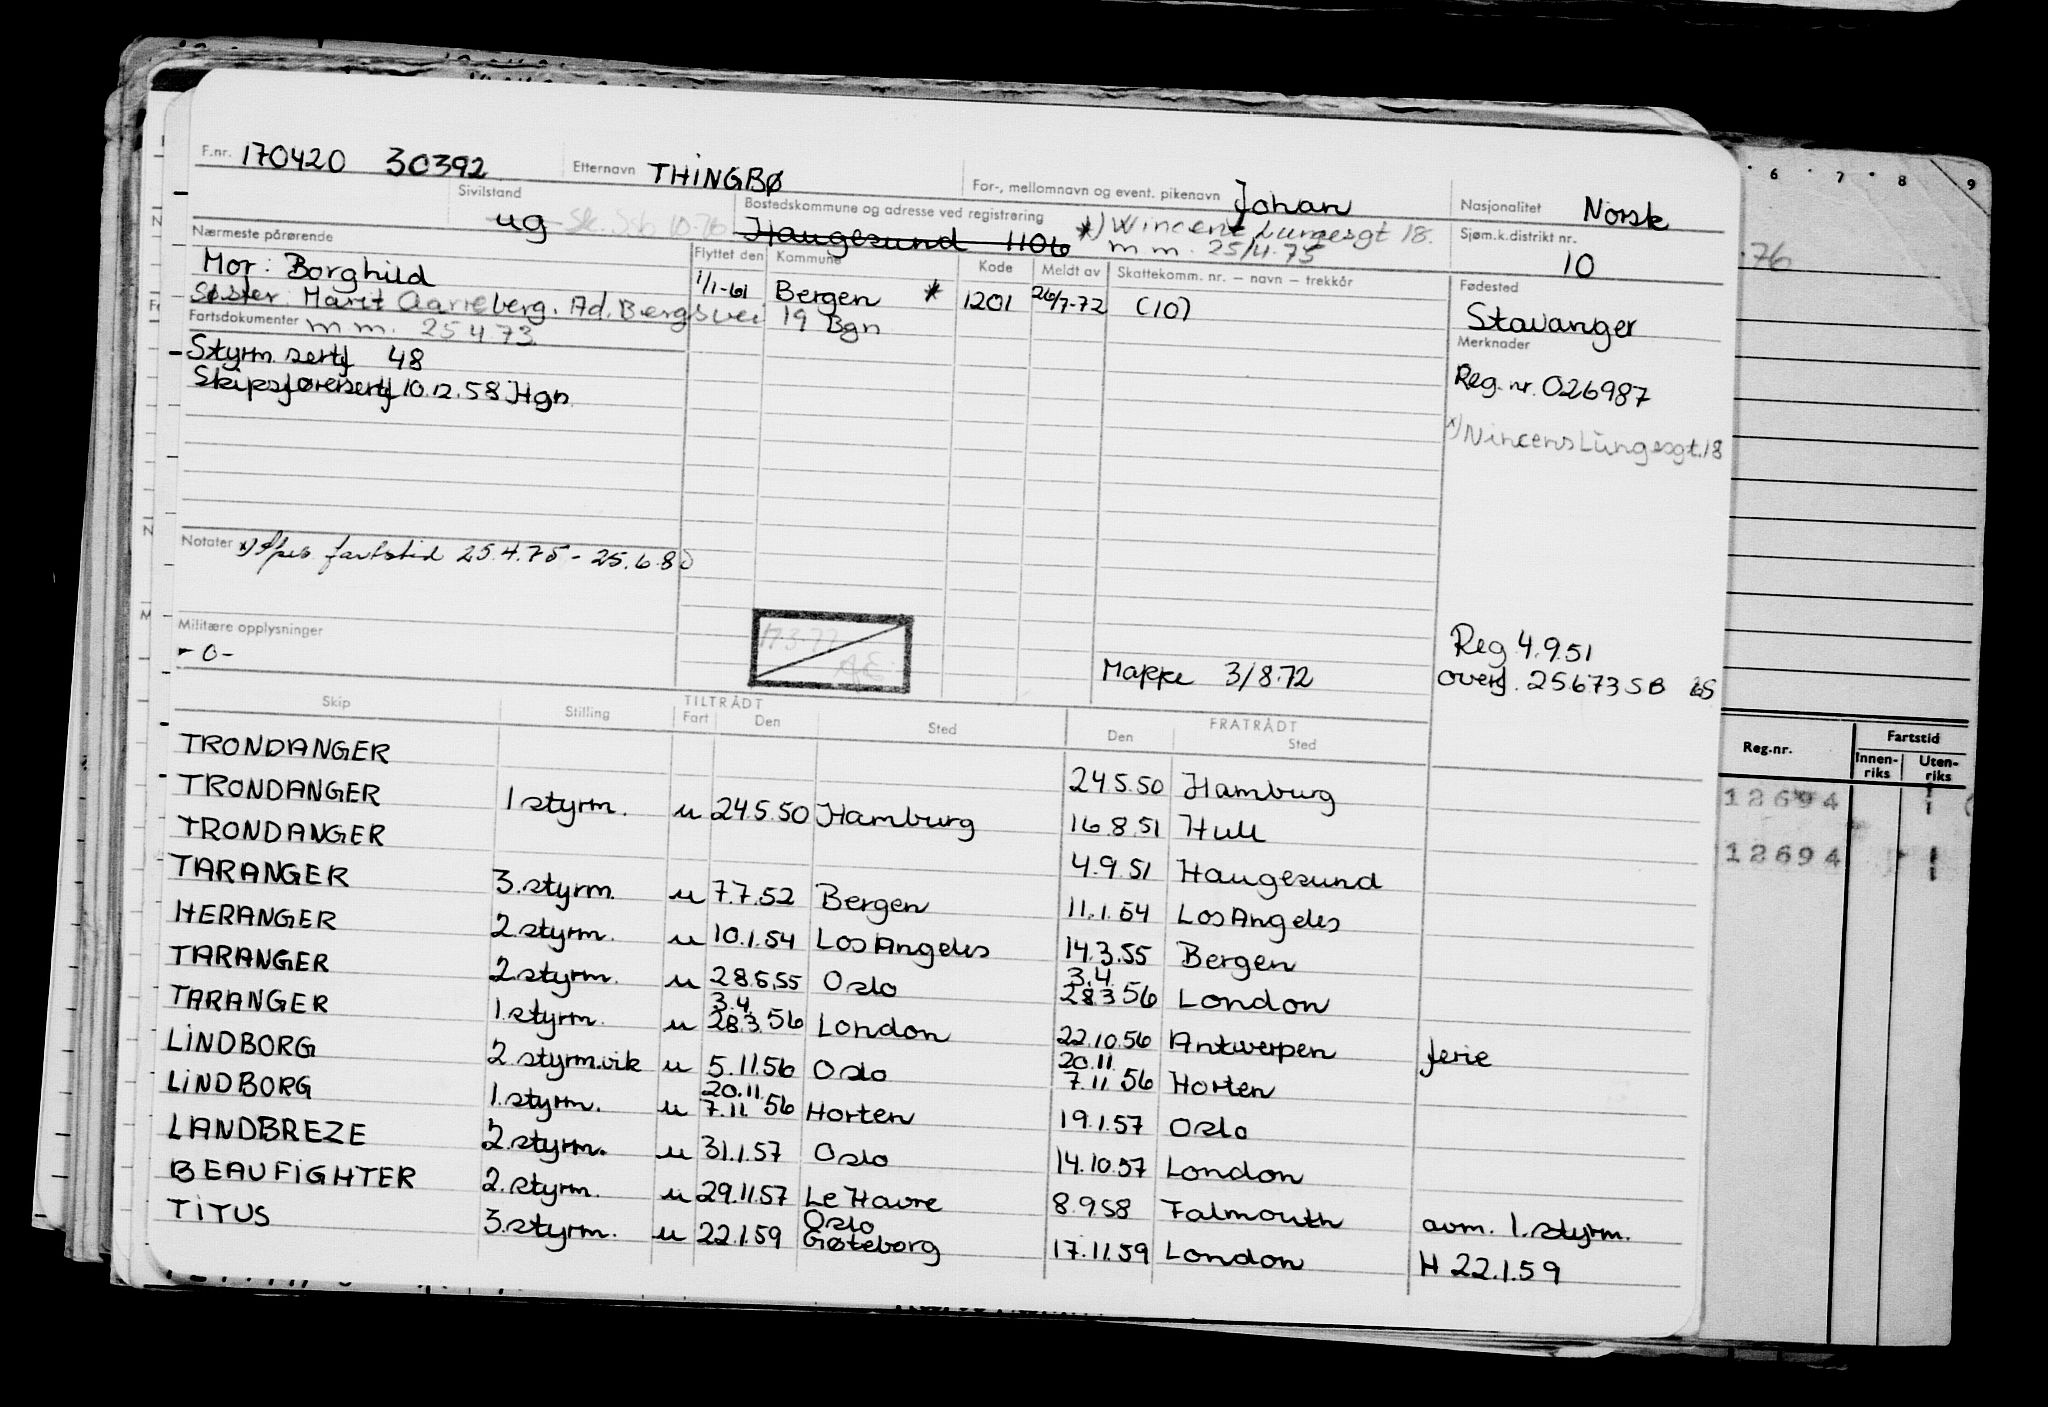 F.nr. 170420 30392 Etternavn THINGBØ For-, mellomnavn og event. pikenavn Johan Nasjonalitet Norsk
Sivilstand ug Bostedskommune og adresse ved registrering Haugesund 1106 *) Wincent Lungesgt 18. Sjøm.k.distrikt nr. 10
m m. 25/4.75
Nærmeste pårørende Flyttet den Kommune Kode Meldt av Skattekomm. nr. – navn – trekkår Fødested
Mor: Borghild 1/1-61 Bergen * 1201 26/7-72 (10) Stavanger
Søster: Marit Aarreberg. Ad. Bergsvei 19 Bgn
Fartsdokumenter m m. 25 4 73 Merknader
Styrm. sertf 48 Reg. nr. 026987
Skipsførersertf 10.12.58 Hgn
*) Nincens Lungesgt. 18
Notater x) fartstid 25.4.75 - 25.6.80
Militære opplysninger
- 0 -
17.3.77
Mappe 3/8.72
Reg 4.9.51
overf. 25673 SB
Skip Stilling TILTRÅDT Fart Den Sted FRATRÅDT Den Sted
TRONDANGER 24.5.50 Hamburg
TRONDANGER 1 styrm. u 24.5.50 Hamburg 16.8.51 Hull
TRONDANGER 4.9.51 Haugesund
TARANGER 3.styrm. u 7.7.52 Bergen 11.1.54 Los Angeles
HERANGER 2.styrm. u 10.1.54 Los Angeles 14.3.55 Bergen
TARANGER 2.styrm. u 28.5.55 Oslo 3.4. 28.3 56 London
TARANGER 1.styrm. u 3.4. 28.3. 56 London 22.10.56 Antwerpen ferie
LINDBORG 2.styrm.vik u 5.11.56 Oslo 20.11. 7.11 56 Horten
LINDBORG 1.styrm. u 20.11. 7.11 56 Horten 19.1.57 Oslo
LANDBREZE 2.styrm. u 31.1.57 Oslo 14.10.57 London
BEAUFIGHTER 2.styrm. u 29.11.57 Le Havre 8.9.58 Falmouth avm. 1.styrm.
TITUS 3.styrm. u 22.1.59 Oslo Gøteborg 17.11.59 London H 22.1.59
6 7 8 9
76
Reg.nr. Fartstid
Innen-riks Uten-riks
12694
12694